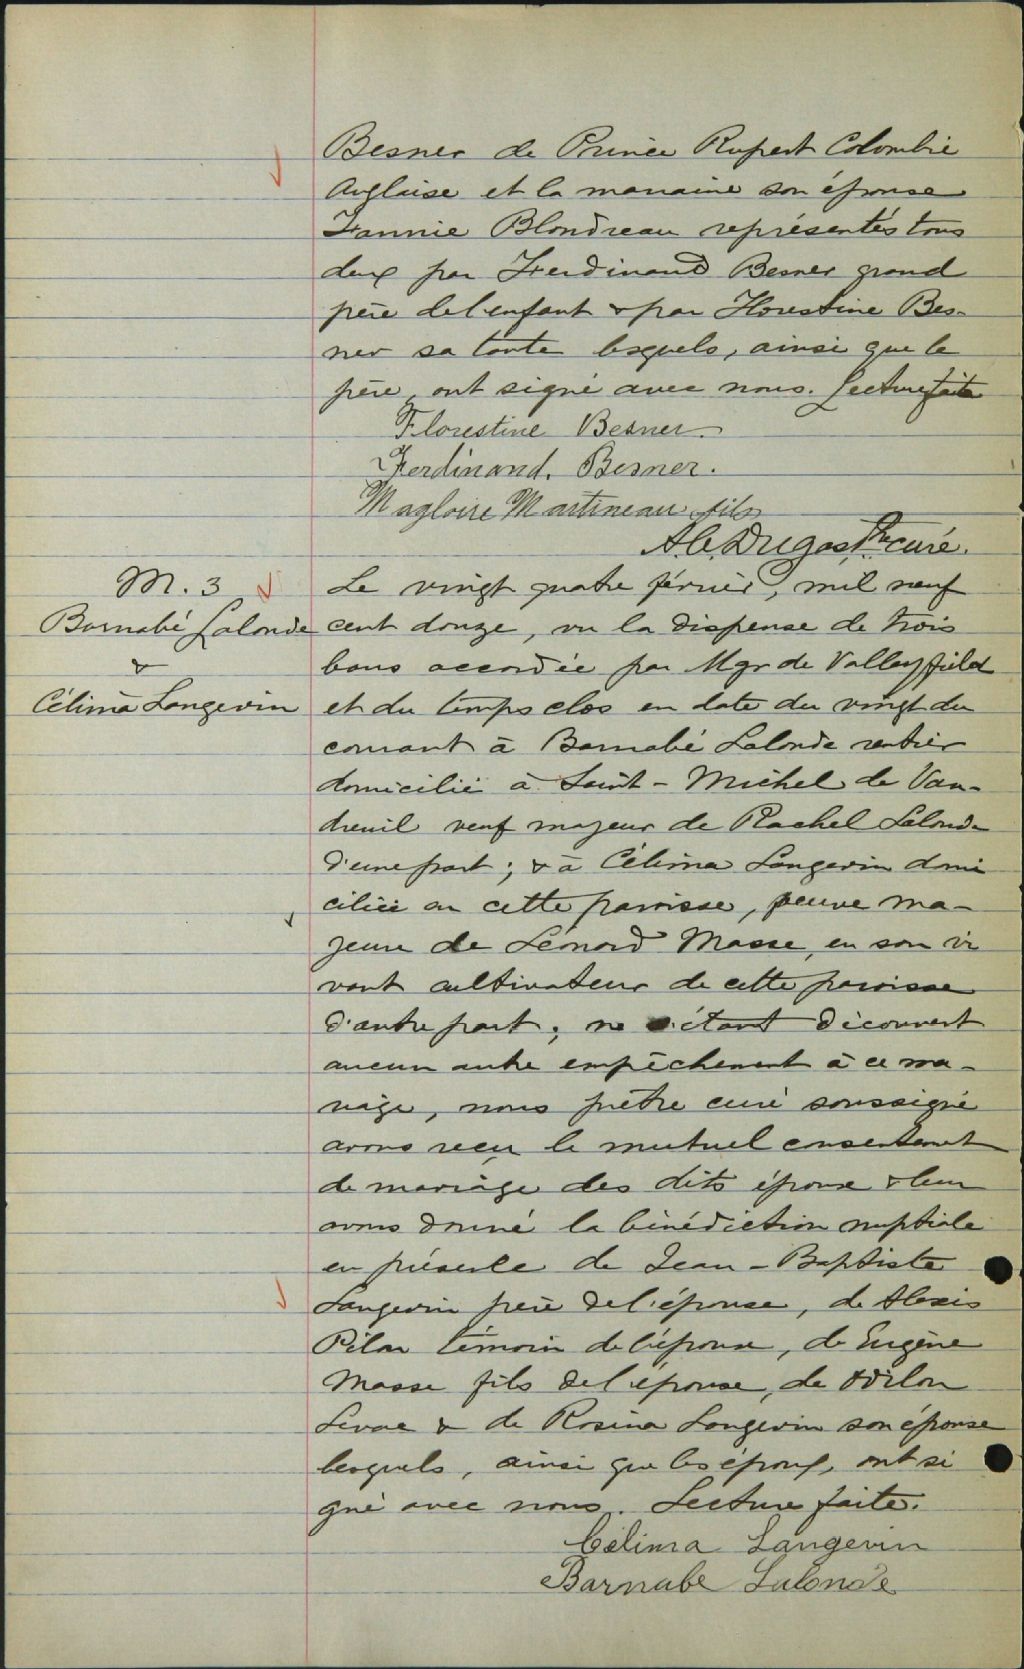 Besner de Prince Rupert Colombie
Anglaise et la marraine son épouse
Fannie Blondreau représentés tous
deux par Ferdinand Besner grand
père de l'enfant & par Florestine Bes-
ner sa tante lesquels, ainsi que le
père, ont signé avec nous. Lecture faite
Florestine Besner
Ferdinand. Besner.
Magloire Martineau fils
A.C. Dugas, Ptre curé.
M. 3
Barnabé Lalonde
&
Célima Langevin
Le vingt quatre février, mil neuf
cent douze, vu la dispense de trois
bans accordée par Mgr de Valleyfield
et du temps clos en date du vingt du
courant à Barnabé Lalonde rentier
domicilié à Saint-Michel de Vau-
dreuil veuf majeur de Rachel Lalonde
d'une part; & à Célima Langevin domi
ciliée en cette paroisse, veuve ma-
jeure de Léonard Masse, en son vi
vant cultivateur de cette paroisse
d'autre part; ne s'étant découvert
aucun autre empêchement à ce ma-
riage, nous prêtre curé soussigné
avons reçu le mutuel consentement
de mariage des dits époux & leur
avons donné la bénédiction nuptiale
en présence de Jean-Baptiste
Langevin père de l'épouse, de Alexis
Pilon témoin de l'époux, de Eugène
Masse fils de l'épouse, de Odilon
Levac & de Rosina Langevin son épouse
lesquels, ainsi que les époux, ont si
gné avec nous. Lecture faite.
Célima Langevin
Barnabe Lalonde